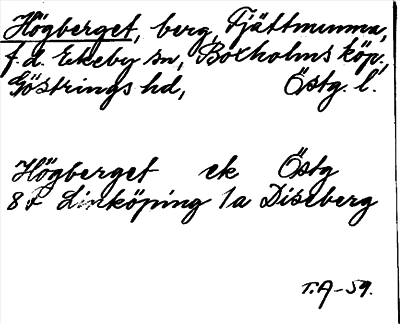 Högberget, berg, Tjättmunma,
f.d. Ekeby sn, Boxholms köp.,
Göstrings hd, Östg. l.
Högberget ek Östg
8 F Linköping 1a Diseberg
T.A-59.